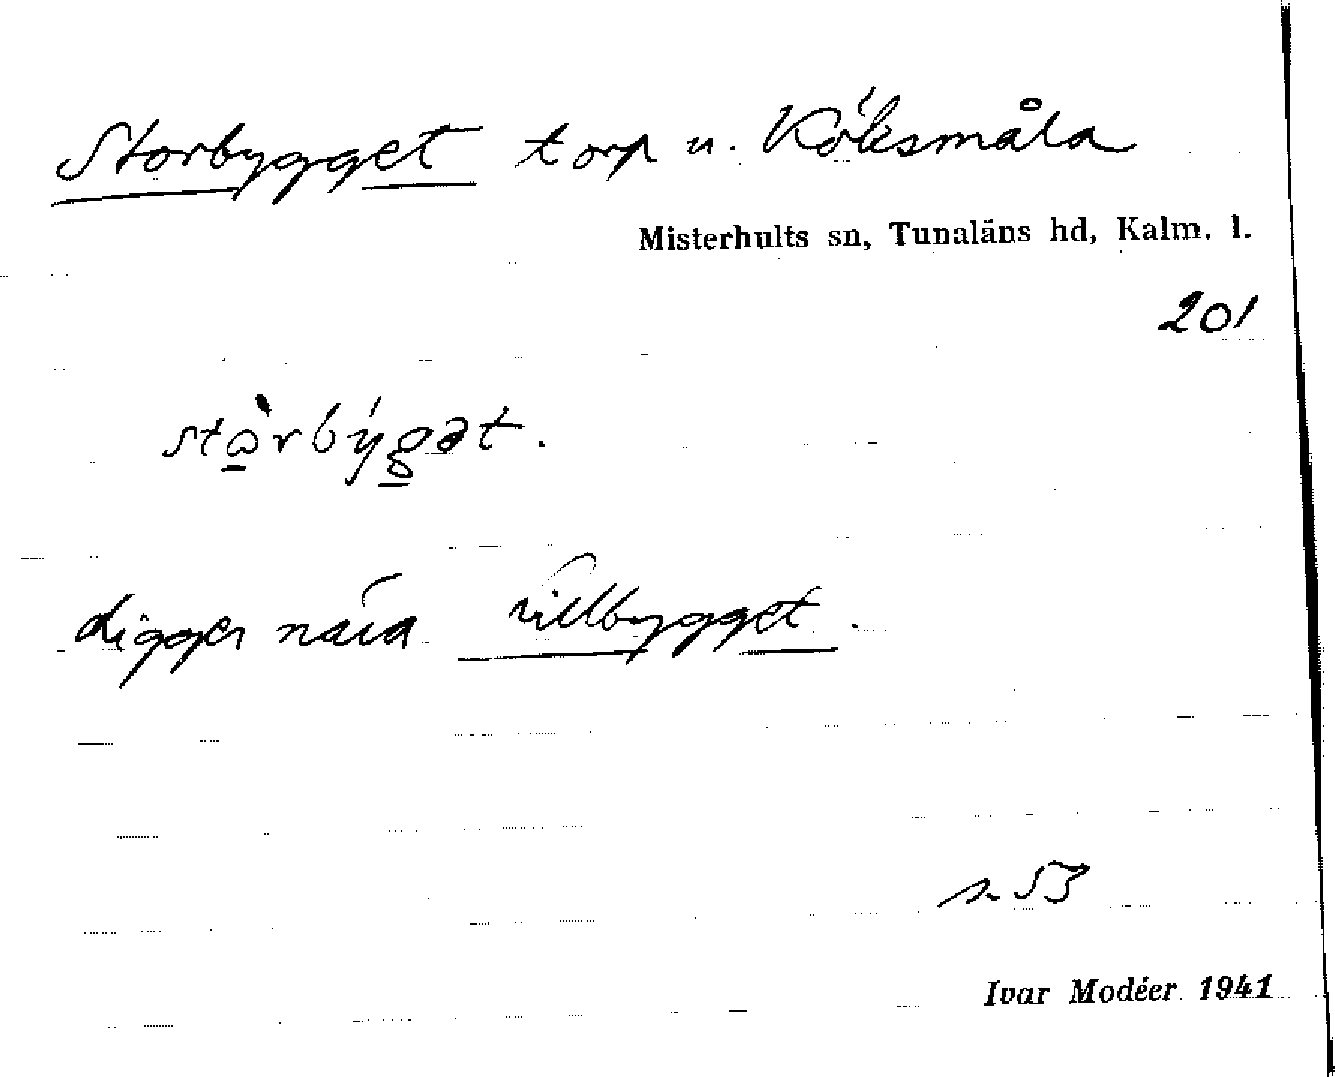 Storbygget torp u. Kölesmåla
Misterhults sn, Tunaläns hd, Kalm. l.
201
Ligger nära Lillbygget.
s. 53
Ivar Modéer 1941